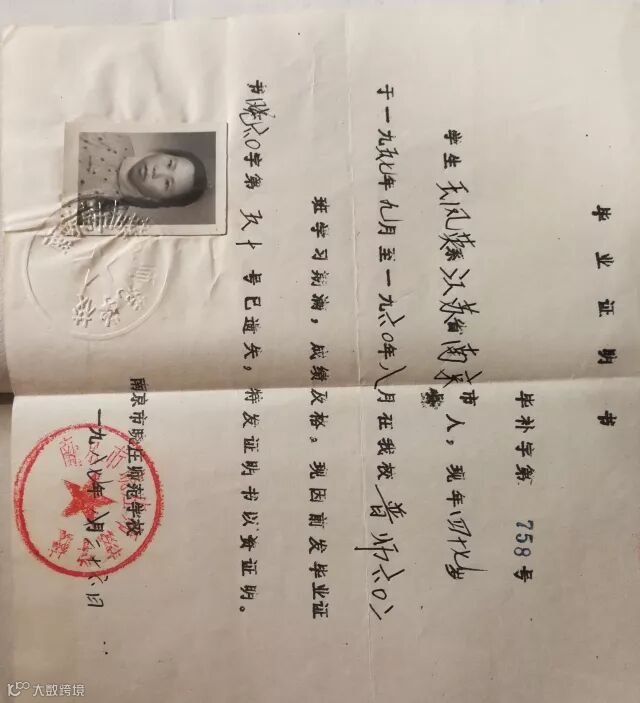 毕业证明书
毕补字第 758 号
学生凤系江苏省南京市人,现年四十九岁
于一九五七年九月至一九六〇年八月在我校普师六〇
班学习期满,成绩及格。现因前发毕业证
书晓六〇字第十号已遗失,特发证明书以资证明。
南京市晓庄师范学校
一九八七年八月二十六日
大数跨境